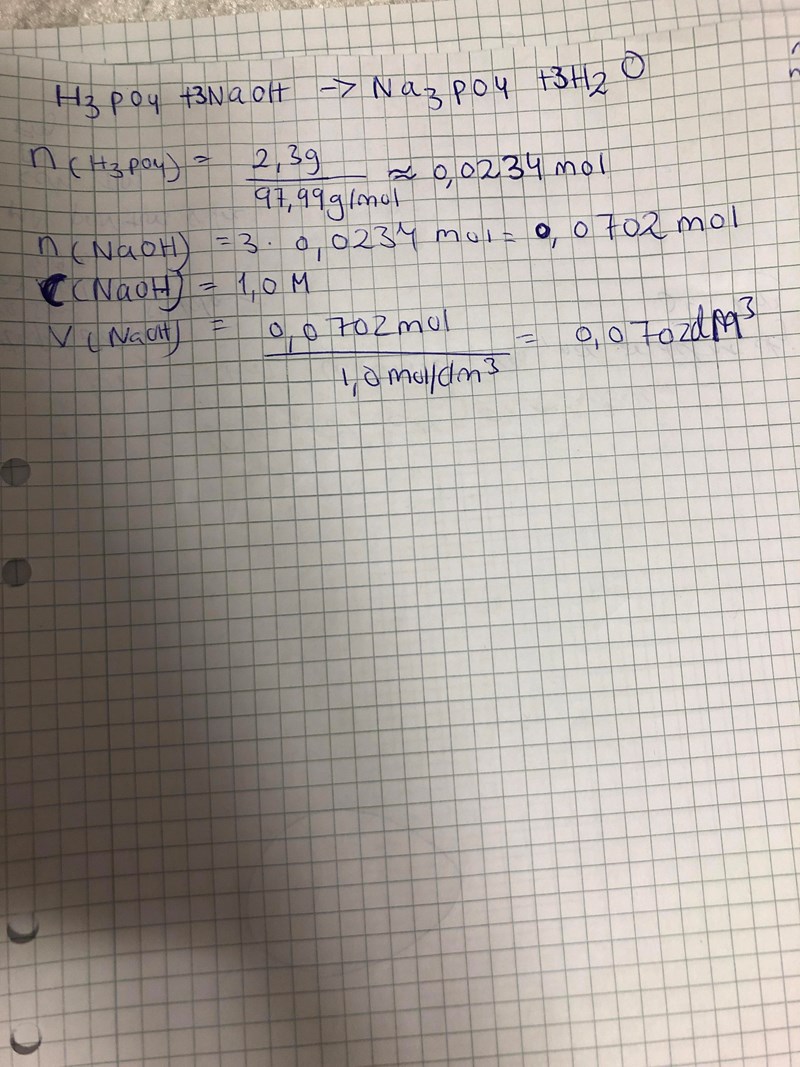 H3PO4 +3NaOH -> Na3PO4 +3H2O
n(H3PO4) = 2,3g / 97,99g/mol ≈ 0,0234 mol
n(NaOH) = 3 · 0,0234 mol = 0,0702 mol
C(NaOH) = 1,0 M
V(NaOH) = 0,0702 mol / 1,0 mol/dm³ = 0,0702 dm³